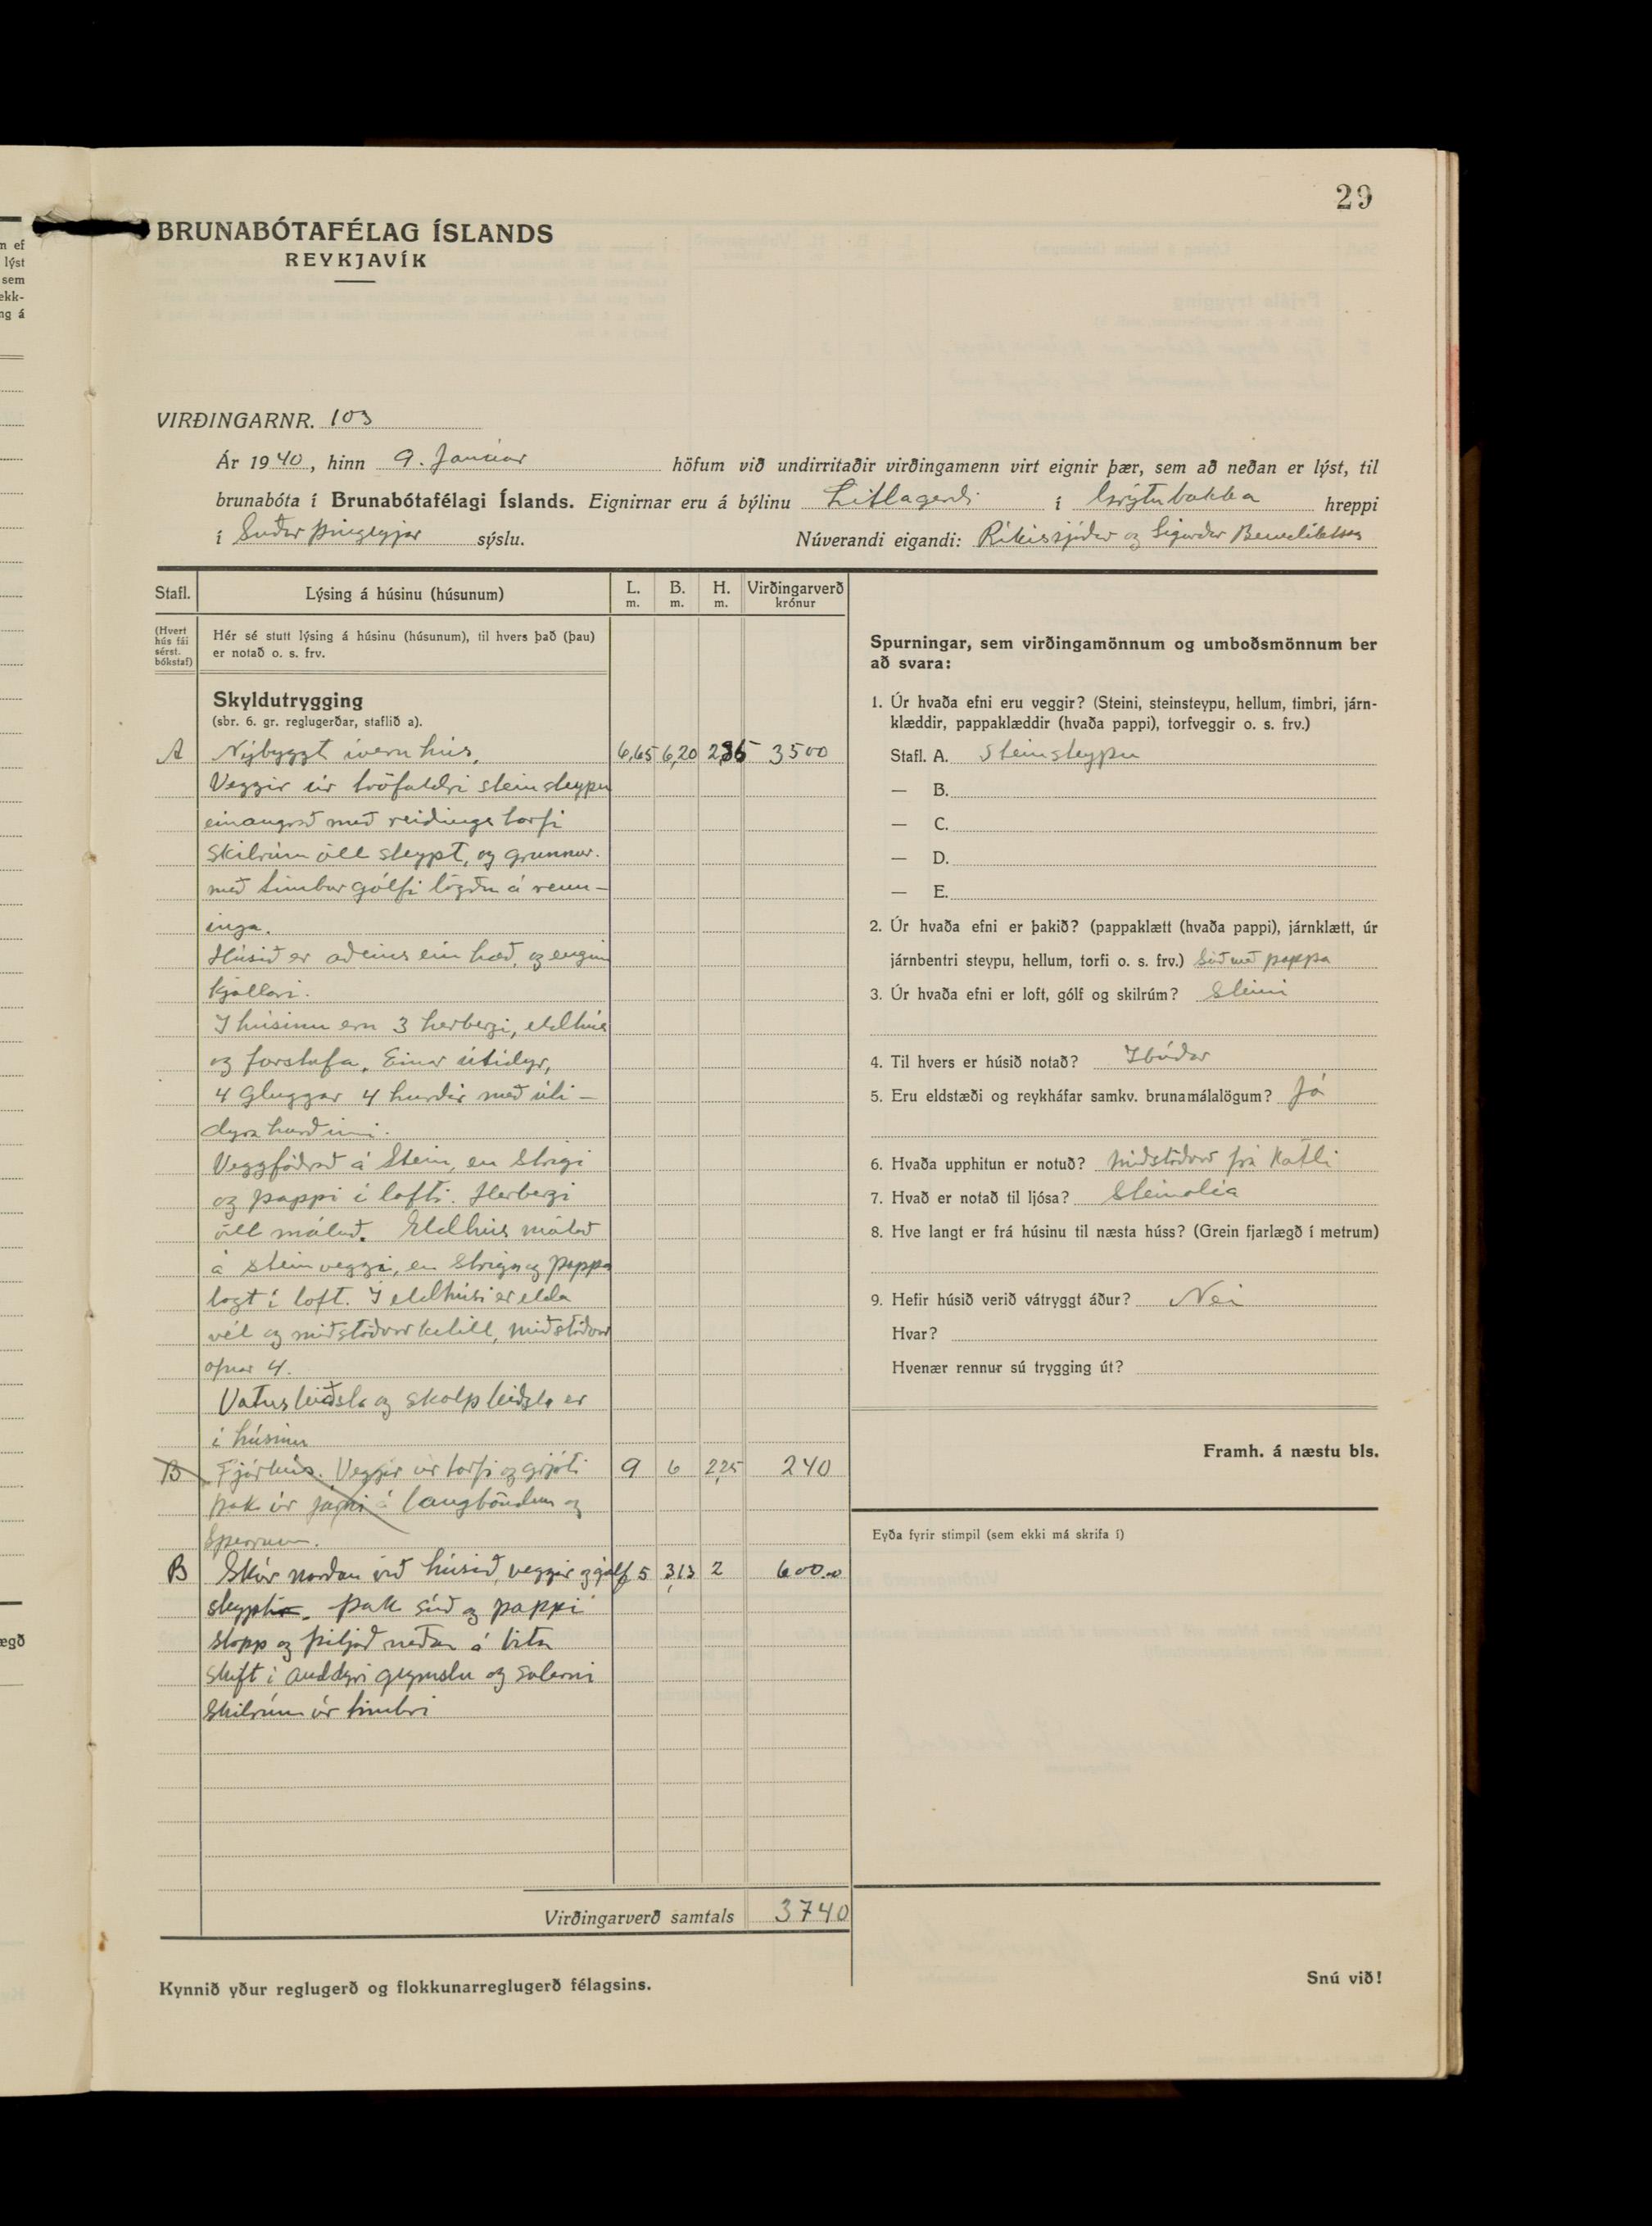 29
BRUNABÓTAFÉLAG ÍSLANDS
REYKJAVÍK
VIRÐINGARNR. 103
Ár 1940, hinn 9. Janúar höfum við undirritaðir virðingamenn virt eignir þær, sem að neðan er lýst, til
brunabóta í Brunabótafélagi Íslands. Eignirnar eru á býlinu Litlagerdi í Grýtubakka hreppi
í Suður þingeyjar sýslu. Núverandi eigandi: Ríkissjóður og Sigurður Benediktsson
Stafl. Lýsing á húsinu (húsunum) L. m. B. m. H. m. Virðingarverð krónur
(Hvert hús fái sérst. bókstaf) Hér sé stutt lýsing á húsinu (húsunum), til hvers það (þau)
er notað o. s. frv.
Skyldutrygging
(sbr. 6. gr. reglugerðar, staflið a).
A Nýbyggt íveru hús, 6,65 6,20 2,35 3500
Veggir úr tvöfaldri steinsteypu
einangrað með reiðings torfi
Skilrúm öll steypt, og grunnur.
með timbur gólfi lögðu á renn-
inga.
Húsið er aðeins ein hæð, og enginn
kjallari.
I húsinu eru 3 herbergi, eldhús
og forstofa. Einar útidyr,
4 Gluggar 4 hurðir með úti-
dyra hurðinni.
Veggfóðrað á Stein, en Strigi
og pappi í lofti. Herbergi
öll máluð. Eldhús málað
á steinveggi, en Striga og pappa
lagt í loft. I eldhúsi er elda
vél og miðstöðvar ketill, miðstöðvar
ofnar 4.
Vatnsleiðsla og skolpleiðsla er
í húsinu
B Fjárhús. Veggir úr torfi og grjóti 9 6 2,25 240
þak úr járni á langböndum og
Sperrum.
B Skúr norðan við húsið, veggir og gólf 5 3,13 2 600.00
steypt. Þak súð og pappi
stopp og þiljað neðan á bita
skift í anddyri geymslu og salerni
Skilrúm úr timbri
Virðingarverð samtals 3740
Kynnið yður reglugerð og flokkunarreglugerð félagsins.
Spurningar, sem virðingamönnum og umboðsmönnum ber
að svara:
1. Úr hvaða efni eru veggir? (Steini, steinsteypu, hellum, timbri, járn-
klæddir, pappaklæddir (hvaða pappi), torfveggir o. s. frv.)
Stafl. A. Steinsteypu
— B.
— C.
— D.
— E.
2. Úr hvaða efni er þakið? (pappaklætt (hvaða pappi), járnklætt, úr
járnbentri steypu, hellum, torfi o. s. frv.) Súð með pappa
3. Úr hvaða efni er loft, gólf og skilrúm? Steini
4. Til hvers er húsið notað? Ibúðar
5. Eru eldstæði og reykháfar samkv. brunamálalögum? Já
6. Hvaða upphitun er notuð? Miðstöðvar frá Katli
7. Hvað er notað til ljósa? Steinolía
8. Hve langt er frá húsinu til næsta húss? (Grein fjarlægð í metrum)
9. Hefir húsið verið vátryggt áður? Nei
Hvar?
Hvenær rennur sú trygging út?
Framh. á næstu bls.
Eyða fyrir stimpil (sem ekki má skrifa í)
Snú við!